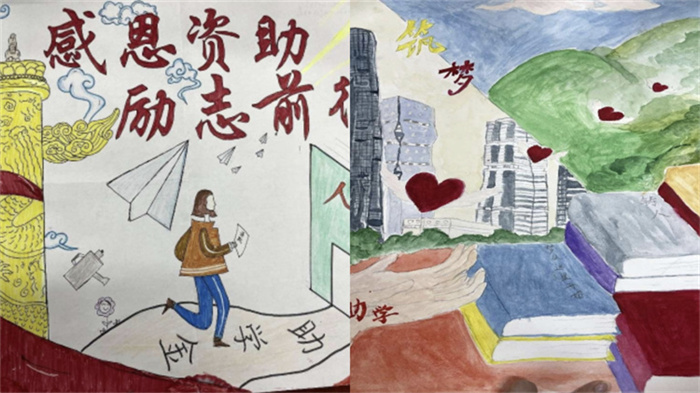 感恩资助
励志前
人
助学金
筑梦
助学